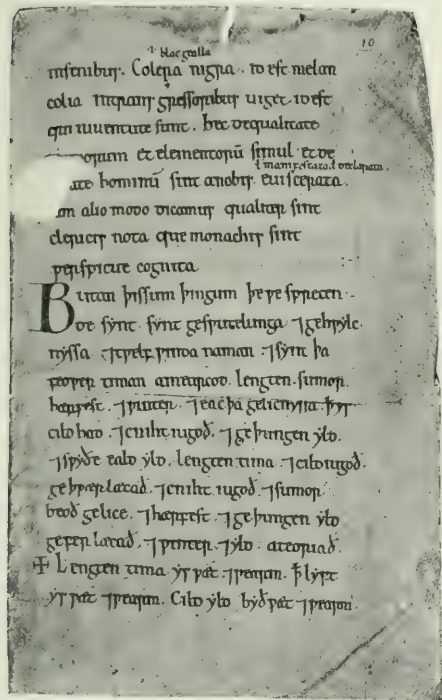 10
ł blac gealla
in senibus. Colera nigra .id est melan
colia in quam gressoribus uiget .id est
qui iuuentute sunt. hec de qualitate
et elementorū simul et de
ł manifestata.
hominū sint a nobis euiscerata.
alio modo dicamus qualiter sint
clericis nota que monachis sint
perspicue cognita
Butan þissum þingum þe ƿe sprecen
de synt. synt gesƿutelunga ⁊ gehƿylc
nyssa ⁊ tƿelf ƿinda naman. ⁊ synt þa
feoƿer timan amearcod. lengten. sumor.
hærfest. ⁊ ƿinter. ⁊ eac þa gelicnyssa. þys
cildhad. ⁊ cniht iugoð. ⁊ geþungen yld.
⁊ sƿyðe eald yld. lengten tima. ⁊ cild iugoð.
geþƿærlæcað. ⁊ cniht iugoð. ⁊ sumor
beoð gelice. ⁊ hærfest. ⁊ geþungen yld
geferlæcað. ⁊ ƿinter. ⁊ yld. ateoriað.
Lengten tima ys ƿæt ⁊ ƿearm. ꝥ lyft
ys ƿæt ⁊ ƿearm. Cild yld byð ƿæt ⁊ ƿearm.